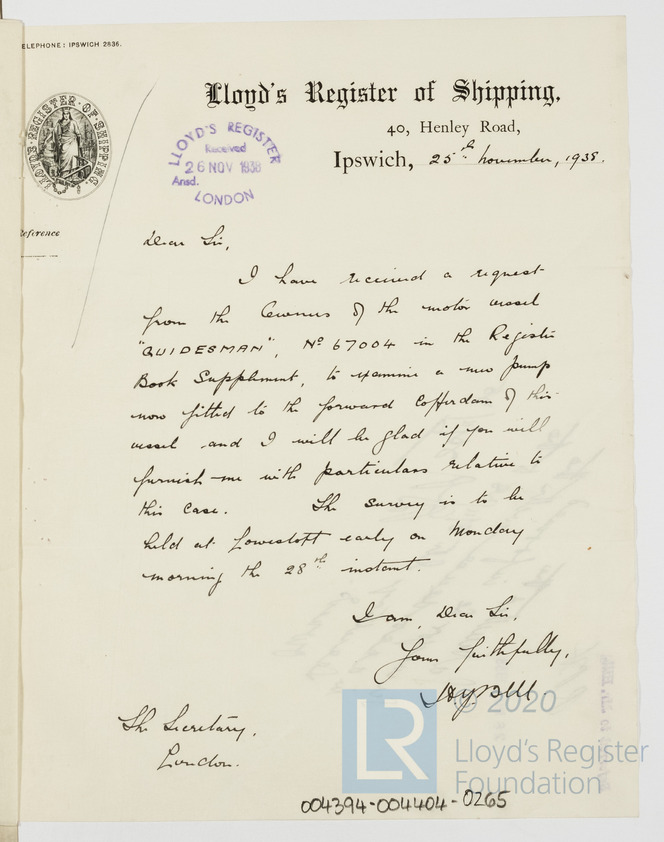 ELEPHONE: IPSWICH 2836.
LLOYD'S REGISTER OF SHIPPING.
Lloyd's Register of Shipping,
40, Henley Road,
Ipswich, 25th November, 1938.
LLOYD'S REGISTER
Received
26 NOV 1938
Ansd.
LONDON
Reference
Dear Sir,
I have received a request
from the Owners of the motor vessel
"GUIDESMAN", No 67004 in the Register
Book Supplement, to examine a new pump
now fitted to the forward Cofferdam of this
vessel and I will be glad if you will
furnish me with particulars relative to
this case. The survey is to be
held at Lowestoft early on Monday
morning the 28th instant.
I am, Dear Sir,
Yours faithfully,
The Secretary,
London.
© 2020
LR
Lloyd's Register
Foundation
004394-004404-0265